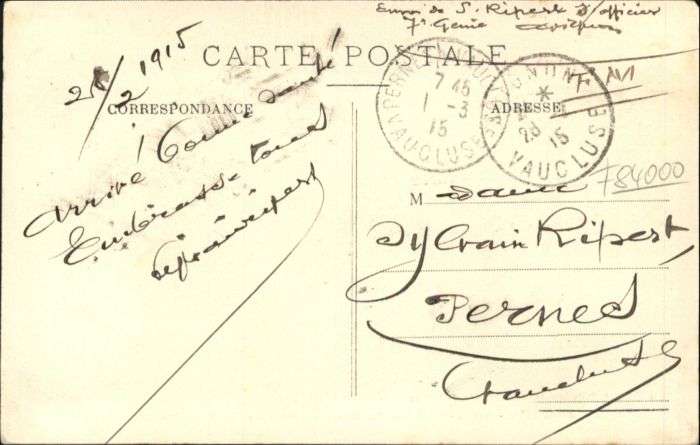 Envoi de S. Ripert S/officier
7e Genie Avignon
CARTE POSTALE
28/2 1915
CORRESPONDANCE
ADRESSE
PERNES
VAUCLUSE
7 45
1 - 3
15
VAUCLUSE
28
15
F84000
Arrivé bonne santé
Embrasse tous
M adame
Sylvain Ripert
Pernes
Vaucluse